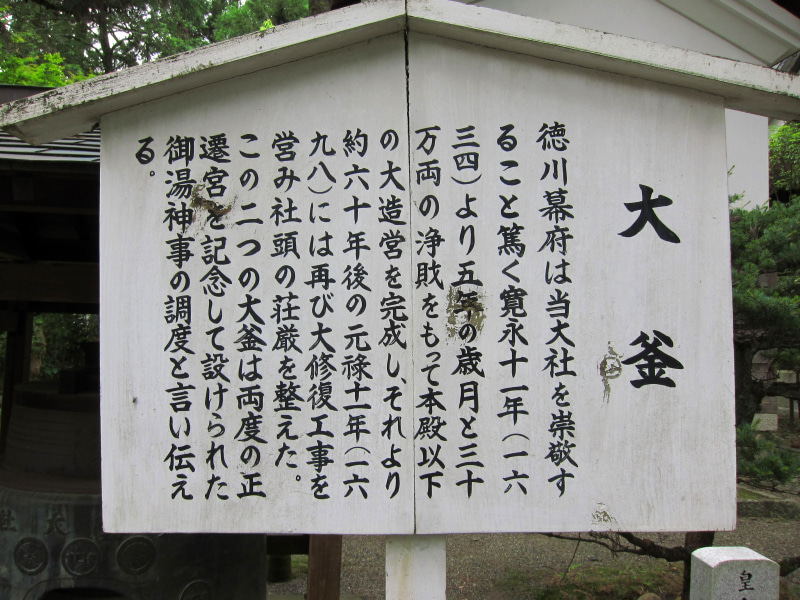 大釜
徳川幕府は当大社を崇敬す
ること篤く寛永十一年（一六
三四）より五年の歳月と三十
万両の浄財をもって本殿以下
の大造営を完成し、それより
約六十年後の元禄十一年（一六
九八）には再び大修復工事を
営み社頭の荘厳を整えた。
この二つの大釜は両度の正
遷宮を記念して設けられた
御湯神事の調度と言い伝え
る。
皇